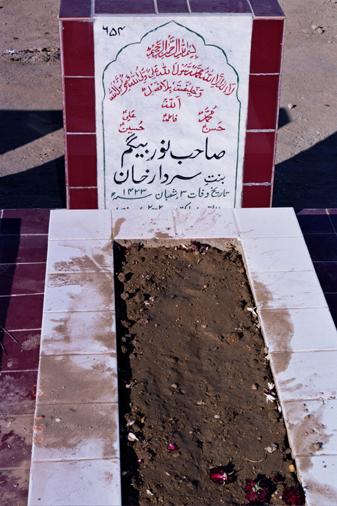 ۶۵۴
بسم اللہ الرحمن الرحیم
لا الہ الا اللہ محمد رسول اللہ علی ولی اللہ وصی رسول اللہ
وخلیفتہ بلا فصل
اللہ
محمد فاطمہ علی
حسن حسین
صاحب نور بیگم
بنت سردار خان
تاریخ وفات ۳ شعبان ۱۴۲۳